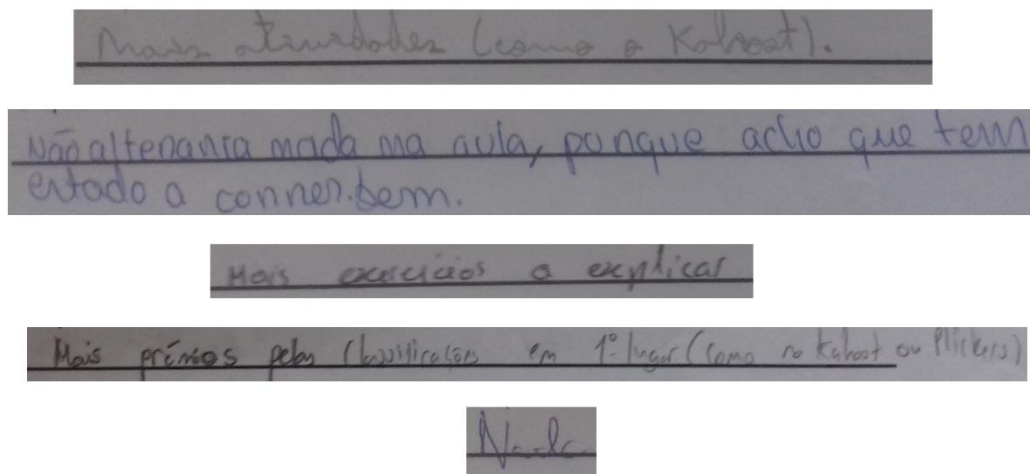 Mais atividades (como o Kahoot).
Não alteraria nada na aula, porque acho que tem
estado a correr bem.
Mais exercícios a explicar
Mais prémios pelas classificações em 1º lugar (como no Kahoot ou Plickers)
Nada